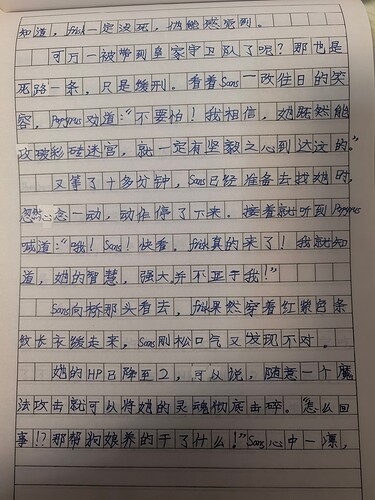 知道，frisk一定没死，他能感觉到。
可万一被带到皇家守卫队了呢？那也是
死路一条，只是缓刑。看着Sans一改往日的笑
容，Papyrus劝道：“不要怕！我相信，她既然能
攻破彩砖迷宫，就一定有坚毅之心到达这的。”
又等了十多分钟，Sans已经准备去找她时，
忽然心念一动，动作停了下来。接着就听到Papyrus
喊道：“哦！Sans！快看，frisk真的来了！我就知
道，她的智慧，强大并不亚于我！”
Sans向桥那头看去，frisk果然穿着红紫色条
纹长衣缓走来，Sans刚松口气又发现不对。
她的HP已降至2，可以说，随意一个魔
法攻击就可以将她的灵魂彻底击碎。“怎么回
事！？那帮狗娘养的干了什么！”Sans心中一凛，